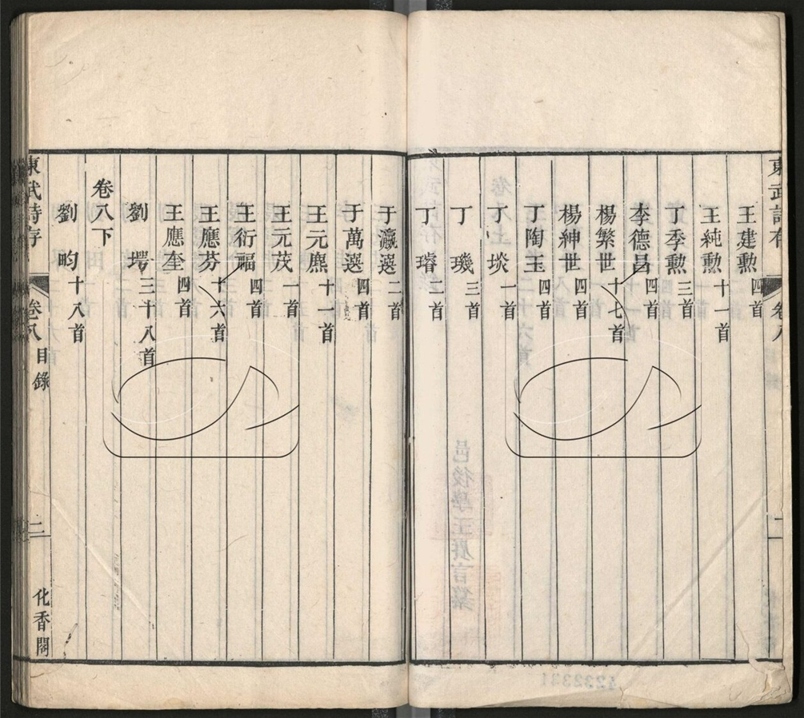 東武詩存
卷八
二
王建勳四首
王純勳十一首
丁季勳三首
李德昌四首
楊繁世十七首
楊紳世四首
丁陶玉四首
丁焱一首
丁璣三首
丁璿二首
于瀛選二首
于萬選四首
王元熈十一首
王元茂一首
王衍福四首
王應芬十六首
王應奎四首
劉墿三十八首
卷八下
劉畇十八首
東武詩存
卷八目錄
二
化香閣